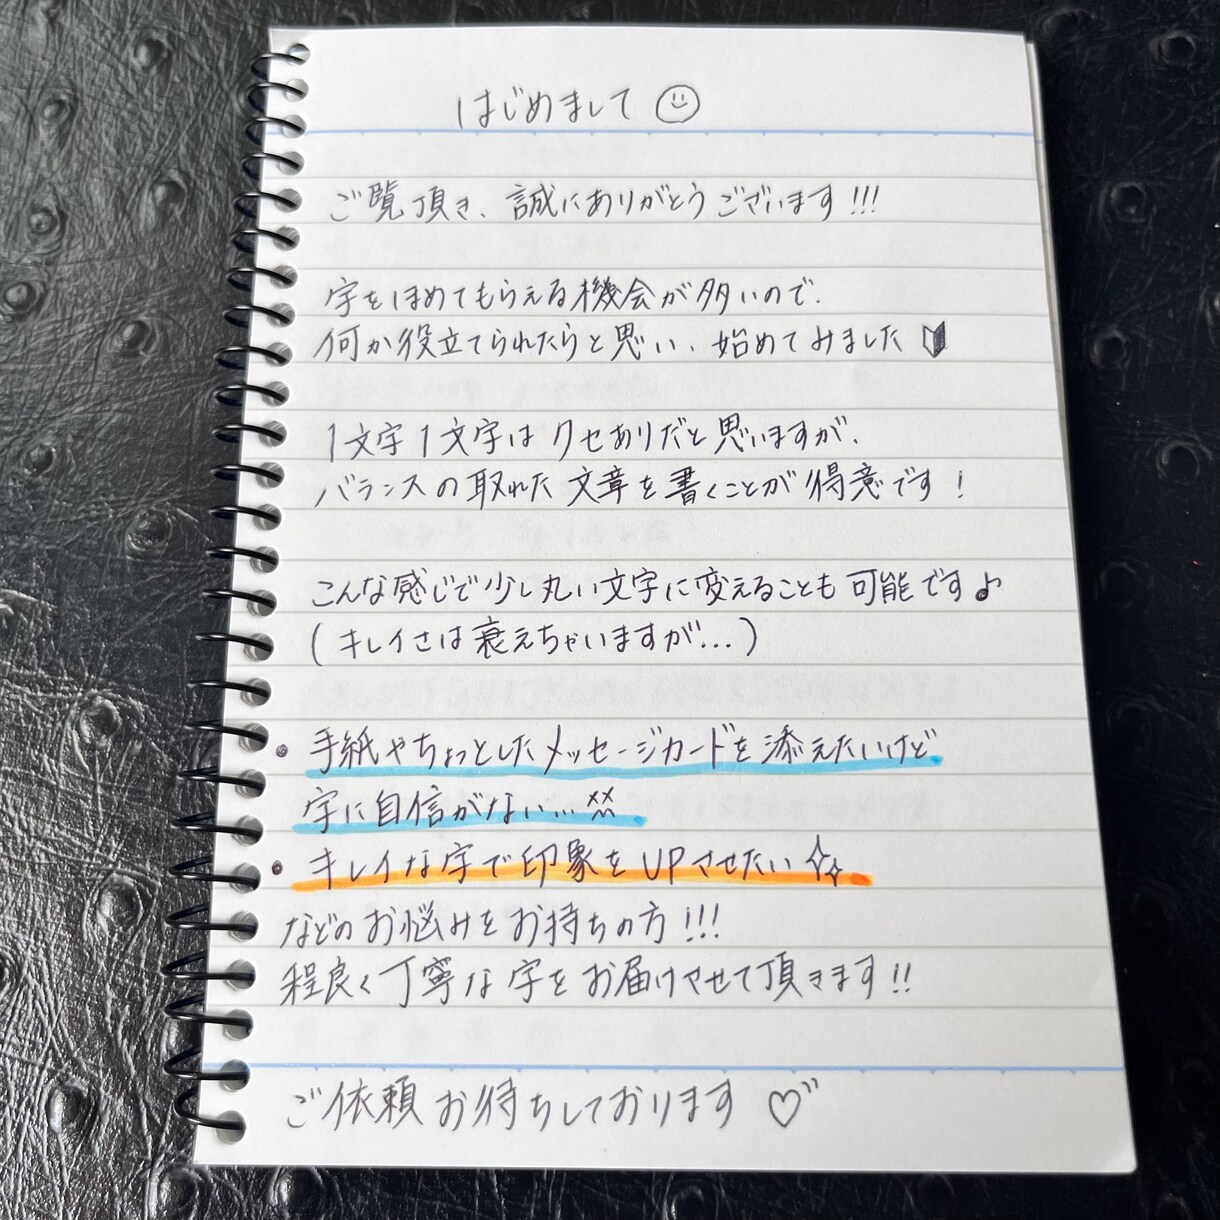 はじめまして☺
ご覧頂き、誠にありがとうございます!!!
字をほめてもらえる機会が多いので、
何か役立てられたらと思い、始めてみました🔰
1文字1文字はクセありだと思いますが、
バランスの取れた文章を書くことが得意です!
こんな感じで少し丸い文字に変えることも可能です♪
(キレイさは衰えちゃいますが...)
・手紙やちょっとしたメッセージカードを添えたいけど
字に自信がない...
・キレイな字で印象をUPさせたい✨
などのお悩みをお持ちの方!!!
程良く丁寧な字をお届けさせて頂きます!!
ご依頼お待ちしております♡